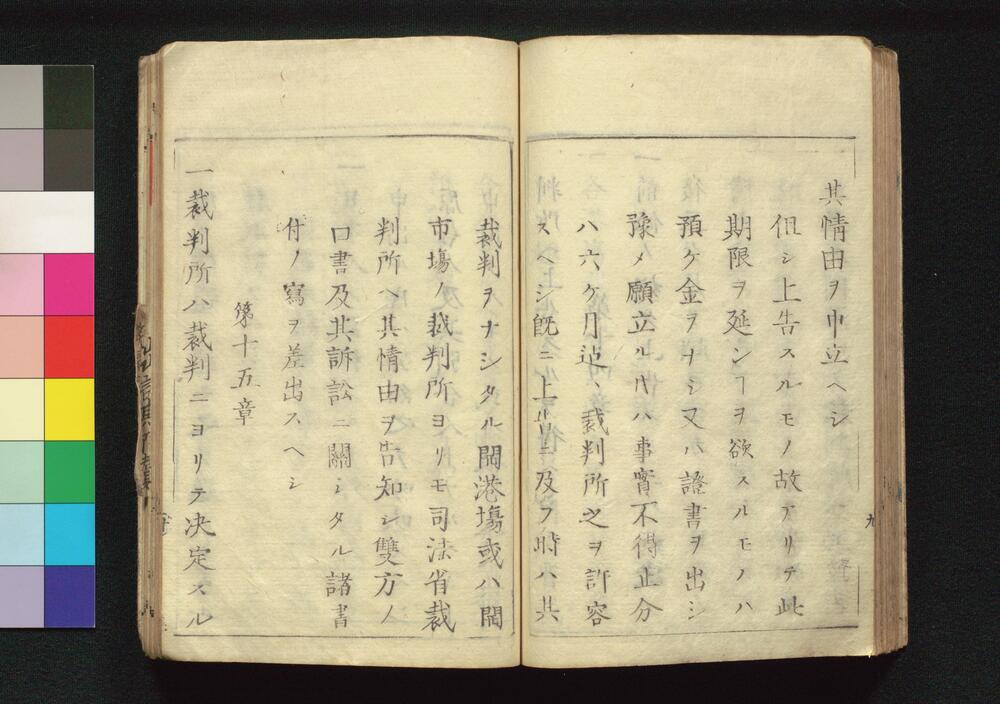 其情由ヲ申立ヘシ
但シ上告スルモノ故アリテ此
期限ヲ延ンヿヲ欲スルモノハ
預ケ金ヲナシ又ハ證書ヲ出シ
豫メ願立ル时ハ事實不得止分
ハ六ケ月迠、裁判所之ヲ許容
スヘシ既ニ上告ニ及フ時ハ其
裁判ヲナシタル開港塲或ハ開
市塲ノ裁判所ヨリモ司法省裁
判所ヘ其情由ヲ告知シ雙方ノ
口書及其訴訟ニ關シタル諸書
付ノ寫ヲ差出スヘシ
第十五章
一裁判所ハ裁判ニヨリテ决定スル
九